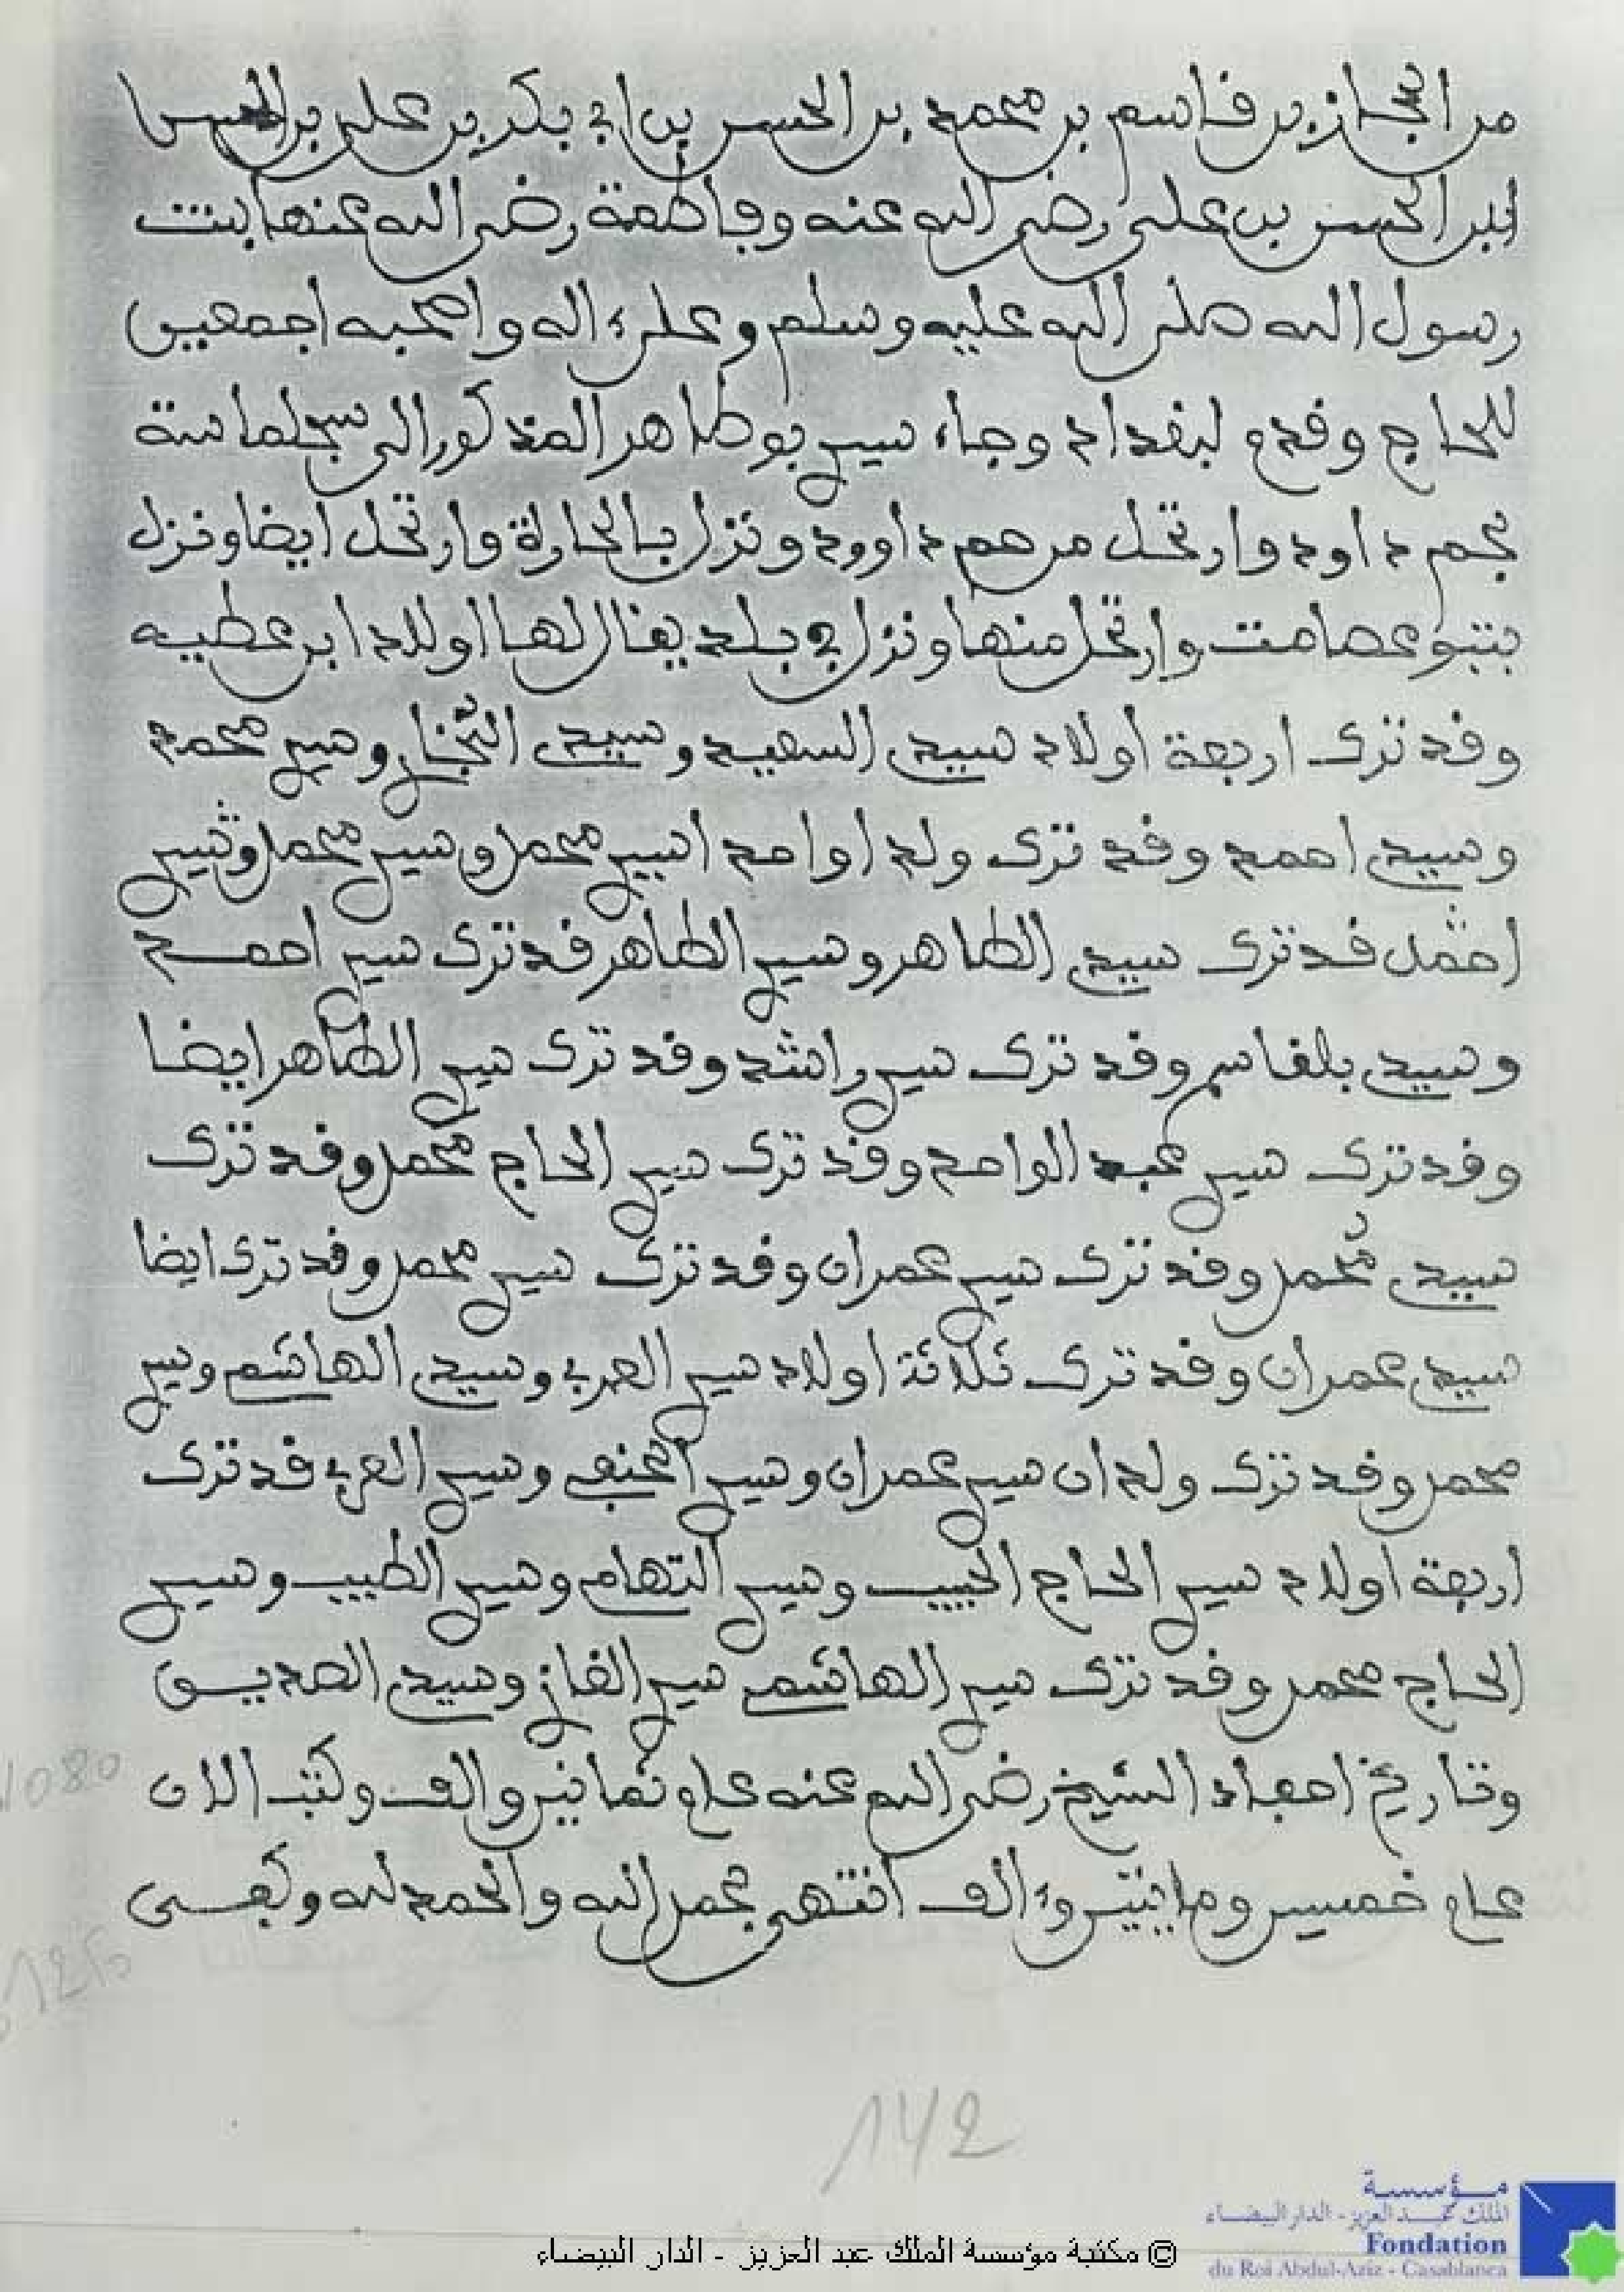 من الحجاز بن قاسم بن محمد بن الحسن بن ابي بكر بن علي بن الحسن
ابن الحسن بن علي رضي الله عنه وفاطمة رضي الله عنها بنت
رسول الله صلى الله عليه وسلم وعلى ءاله واصحبه اجمعين
للحاج وقدم لبغداد وجاء سيد بوطاهر المذكور الى سجلماسة
بحم داود وارتحل من حم داوود ونزل بالحارة وارتحل ايضا ونزل
بتبوعصامت وارتحل منها ونزل في بلد يقال لها اولاد ابن عطيه
وقد ترك اربعة اولاد سيدي السعيد وسيدي وسيد محمد
وسيدي احمد وقد ترك ولدا واحدا سيد محمد وسيد محمد وسيد
احمد قد ترك سيدي الطاهر وسيد الطاهر قد ترك سيد احمد
وسيدي بلقاسم وقد ترك سيد راشد وقد ترك سيد الطاهر ايضا
وقد ترك سيد عبد الواحد وقد ترك سيد الحاج محمد وقد ترك
سيدي محمد وقد ترك سيد عمران وقد ترك سيد محمد وقد ترك ايضا
سيدي عمران وقد ترك ثلاثة اولاد سيد العربي وسيدي الهاشم وسيد
محمد وقد ترك ولدان سيد عمران وسيد الحنفي وسيد العربي قد ترك
اربعة اولاد سيد الحاج الحبيب وسيد التهام وسيد الطيب وسيد
الحاج محمد وقد ترك سيد الهاشمي سيد الغاز وسيدي الصديق
وتاريخ احفاد الشيخ رضي الله عنه عام ثمانين والف وكتب الان
عام خمسين ومايتين وءالف انتهى بحمد الله والحمد لله وكفى
1080
1250
142
مؤسسة
الملك عبد العزيز - الدار البيضاء
Fondation
du Roi Abdul-Aziz - Casablanca
© مكتبة مؤسسة الملك عبد العزيز - الدار البيضاء